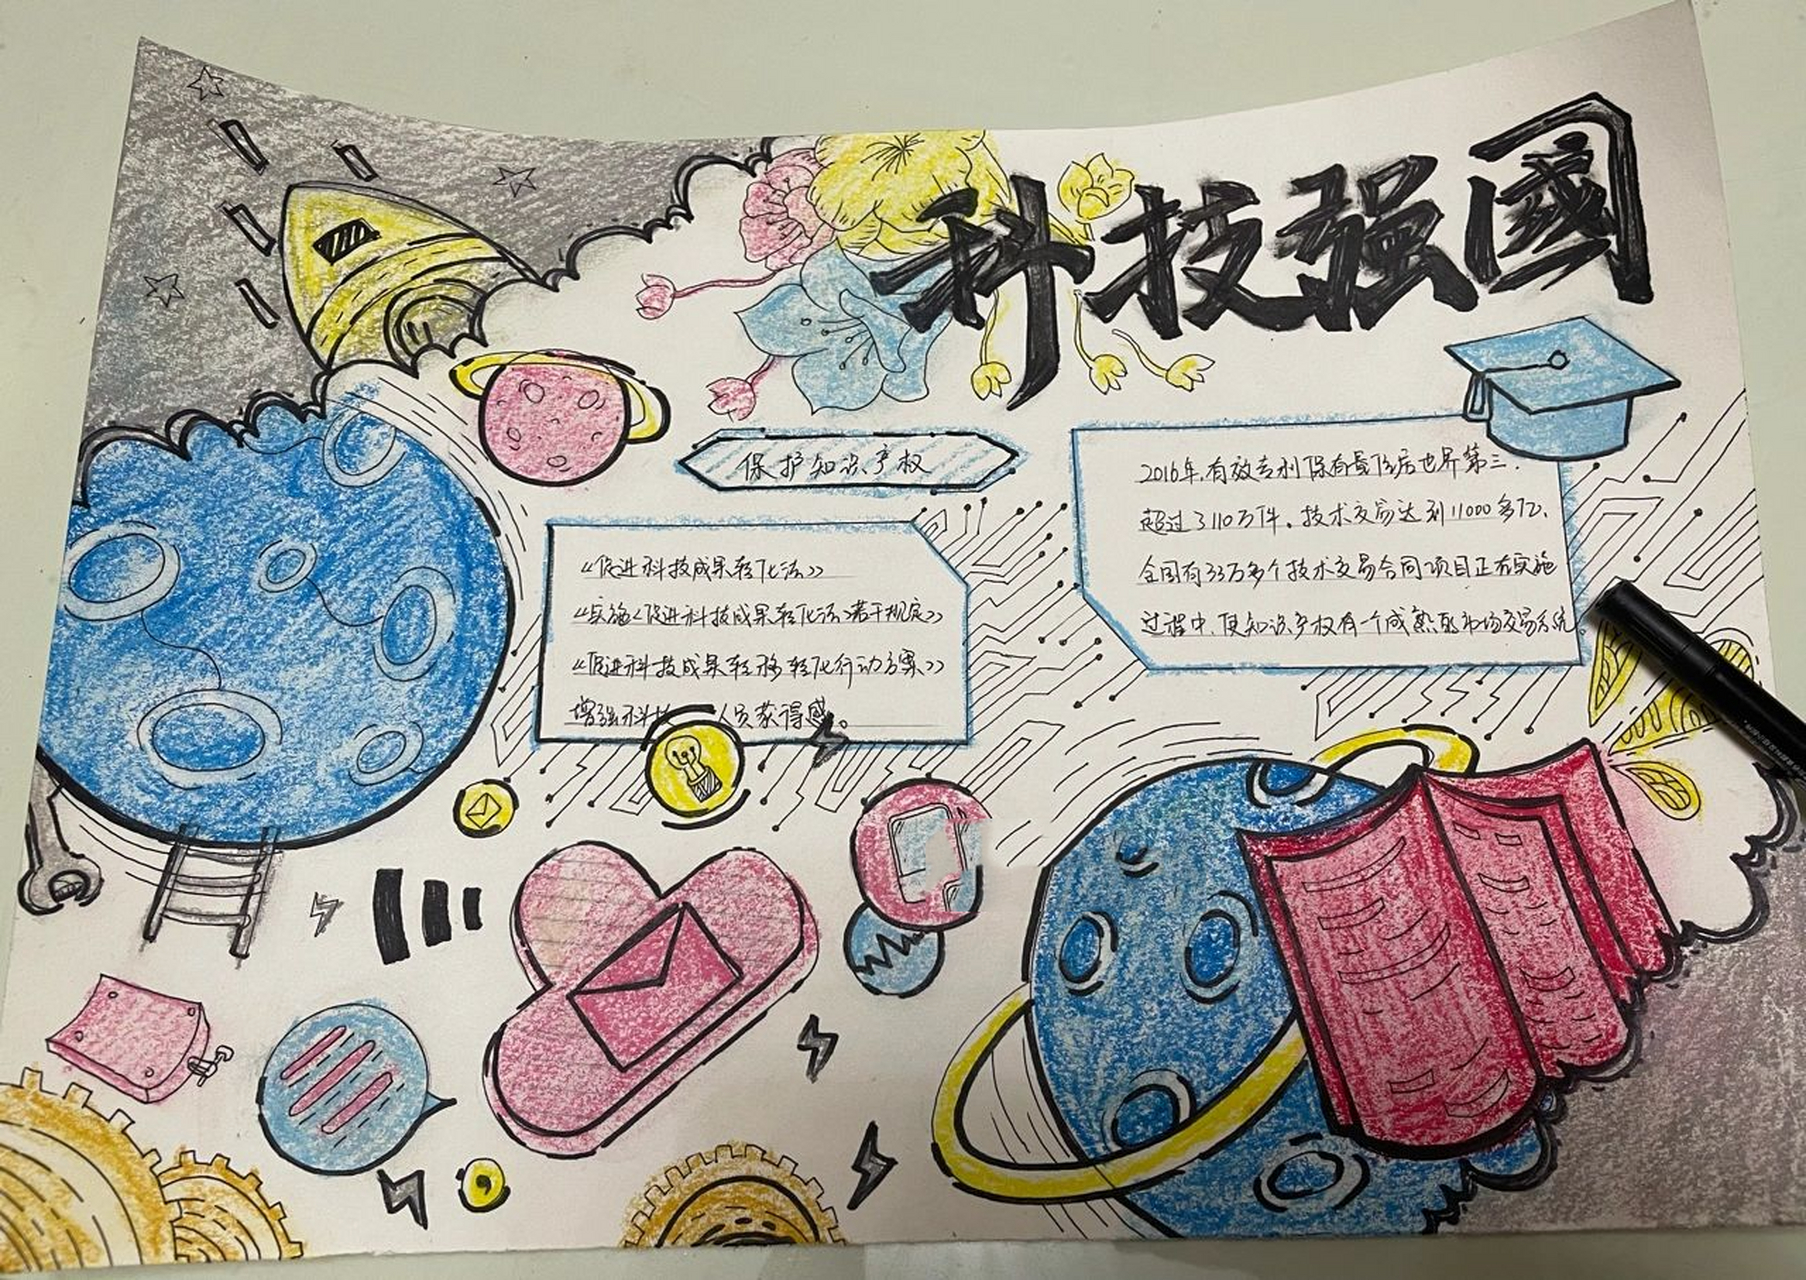 科技强國
保护知识产权
2016年,有效专利保有量位居世界第三,
超过3110万件。技术交易达到11000多亿,
全国有33万多个技术交易合同项目正在实施
过程中,使知识产权有一个成熟的市场交易系统。
《促进科技成果转化法》
《实施<促进科技成果转化法>若干规定》
《促进科技成果转移转化行动方案》
增强科技 人员获得感。